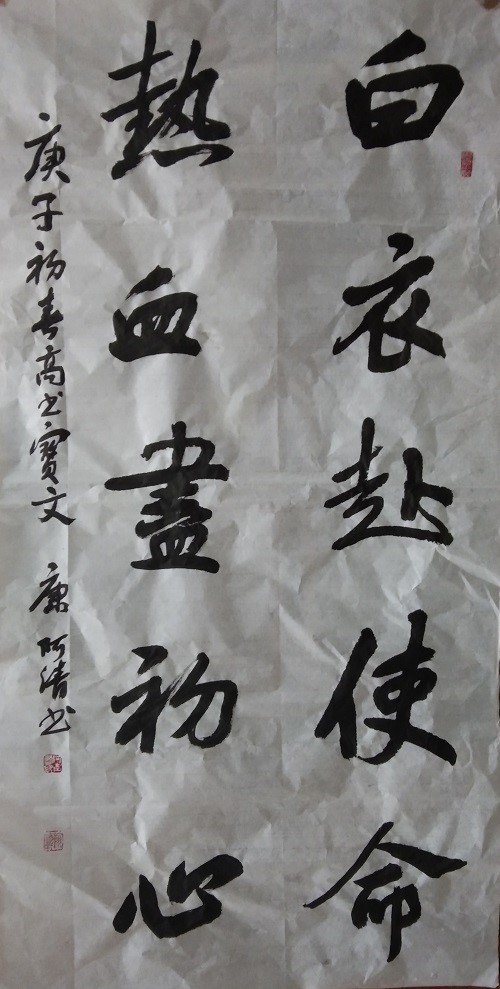 白衣赴使命
熱血盡初心
庚子初春高書寶文 康阿清书